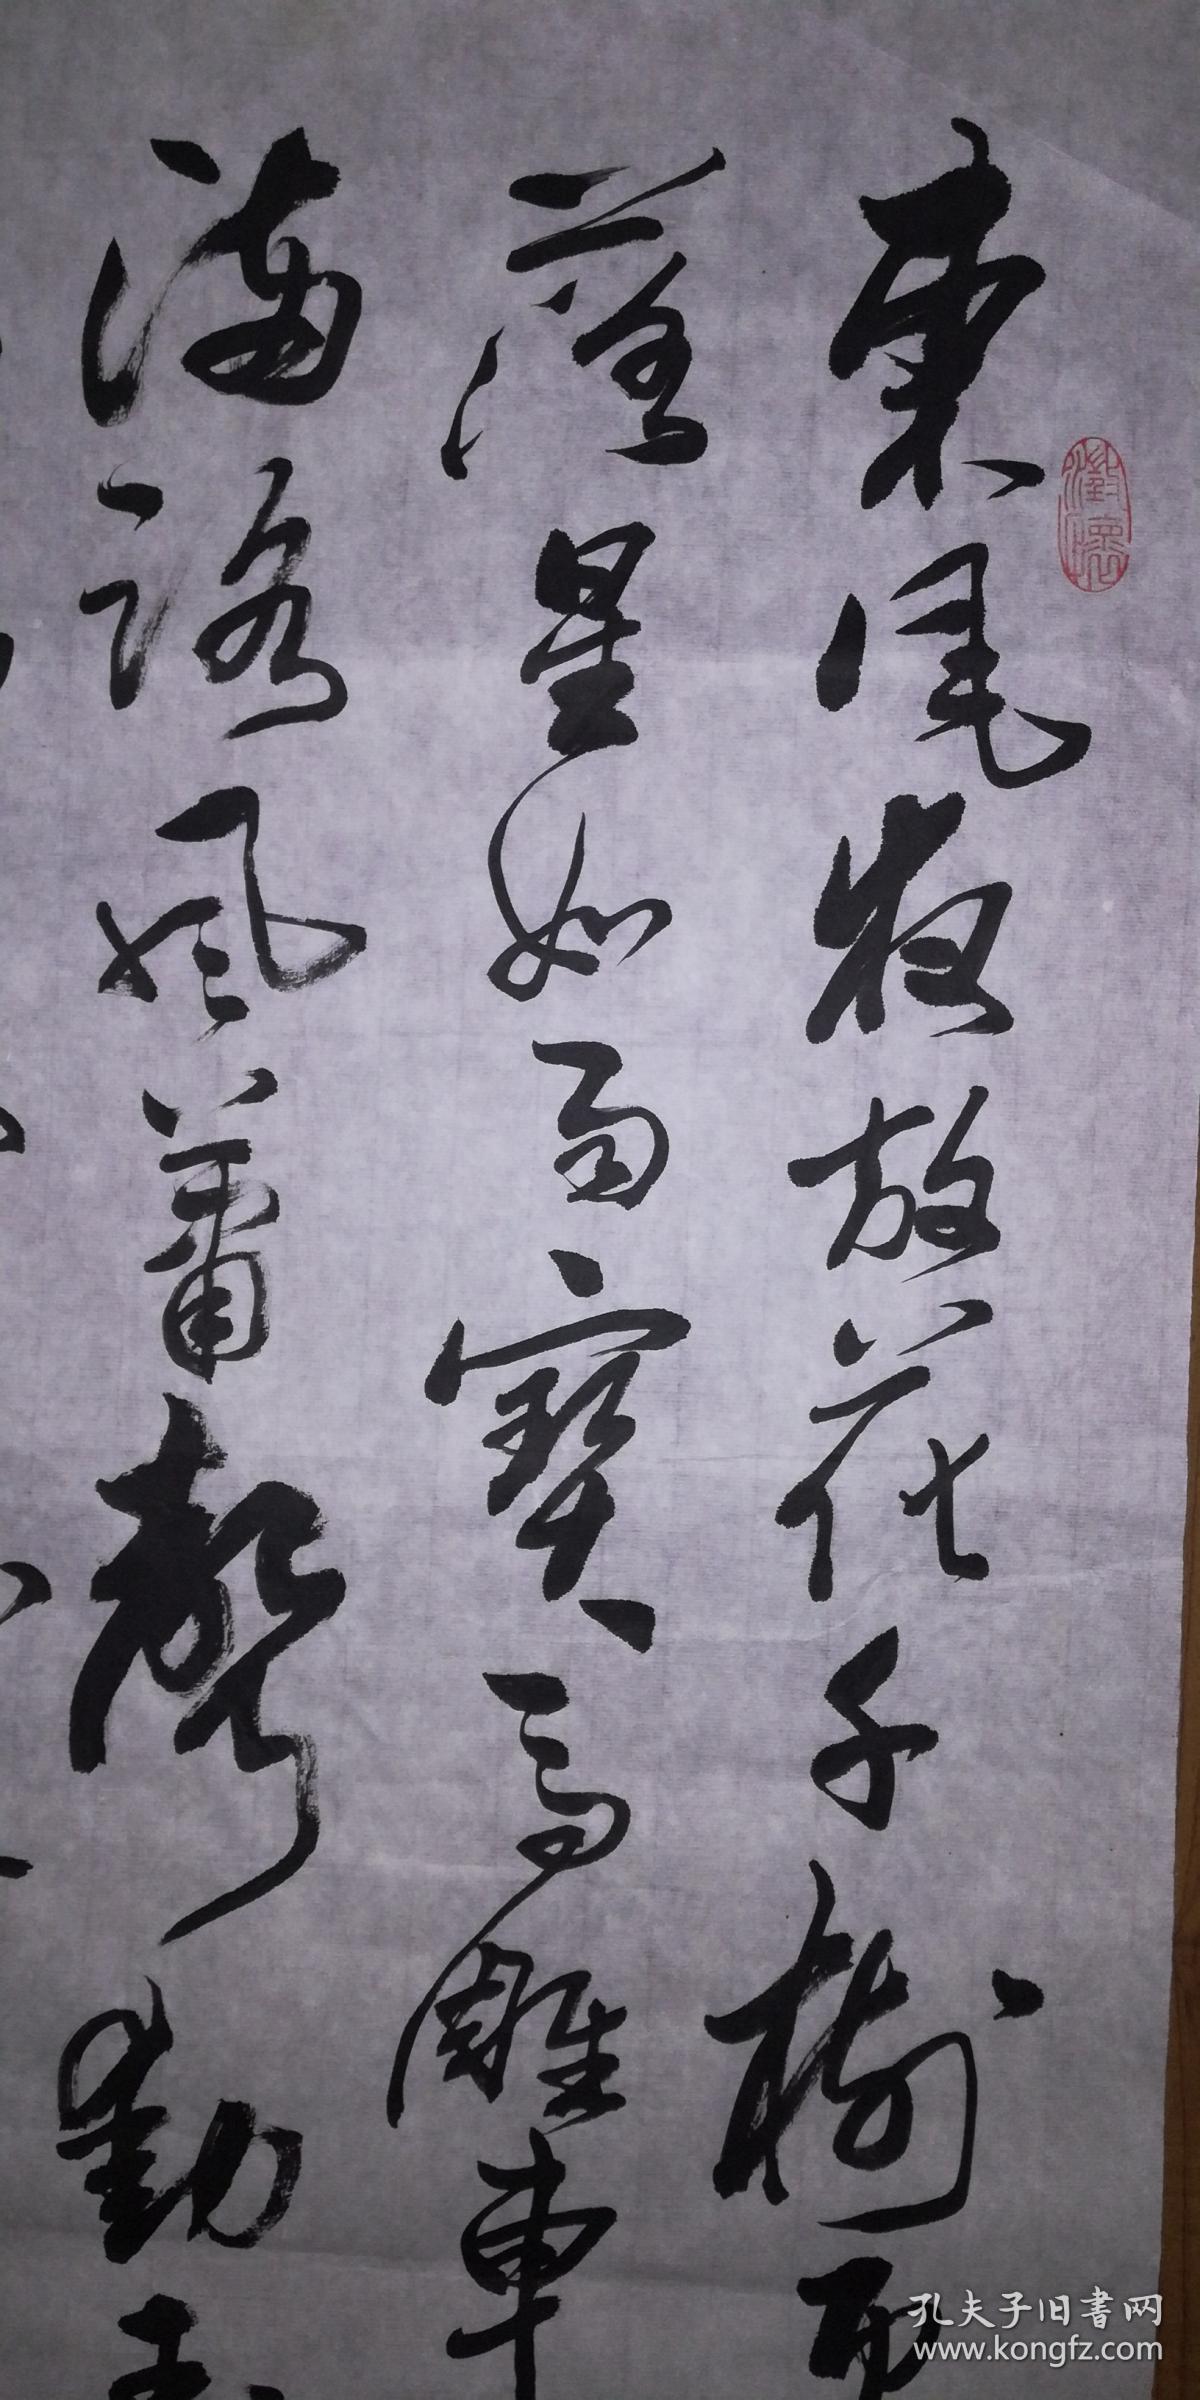 澂懷
東風夜放花千樹更
落星如雨寶馬雕車
滿路鳳簫聲動玉
孔夫子旧書网
www.kongfz.com